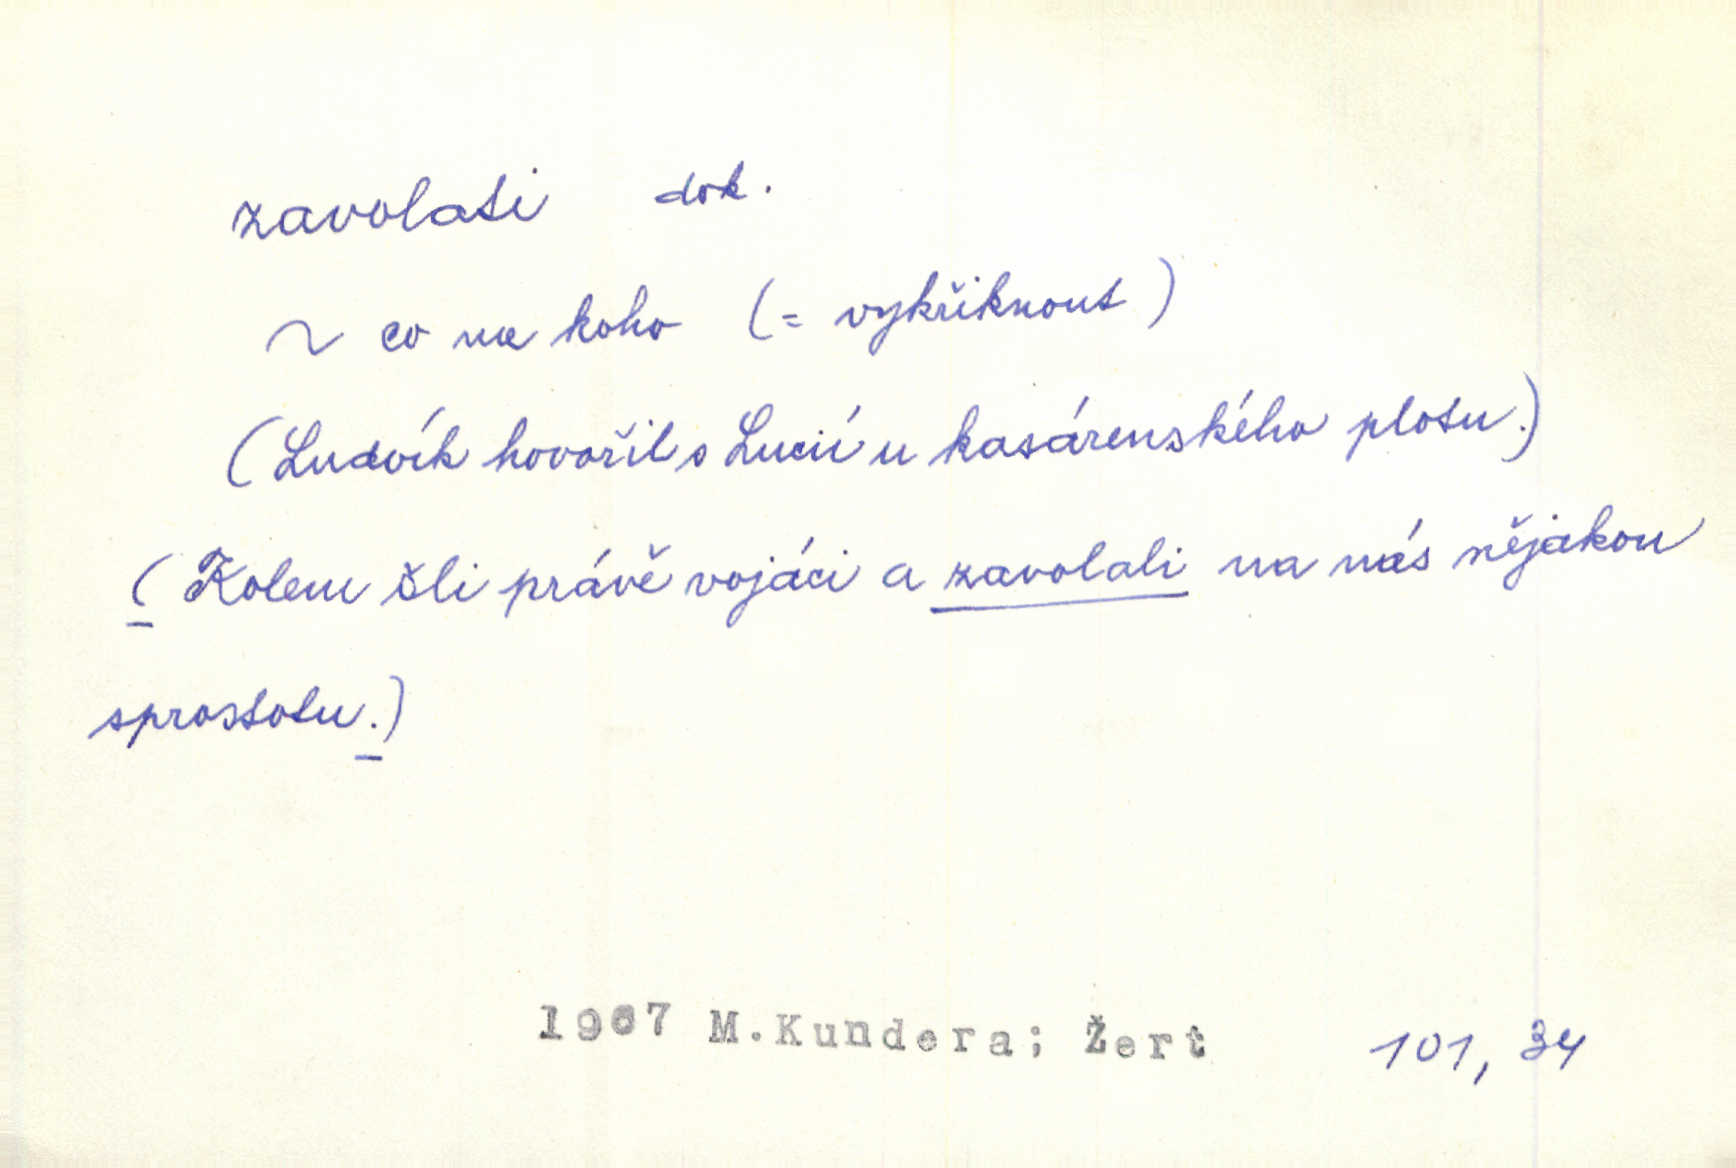 zavolati dok.
~ co na koho (= vykřiknout)
(Ludvík hovořil s Lucií u kasárenského plotu.)
(Kolem šli právě vojáci a zavolali na nás nějakou
sprostotu.)
1967 M.Kundera; Žert 101, 34